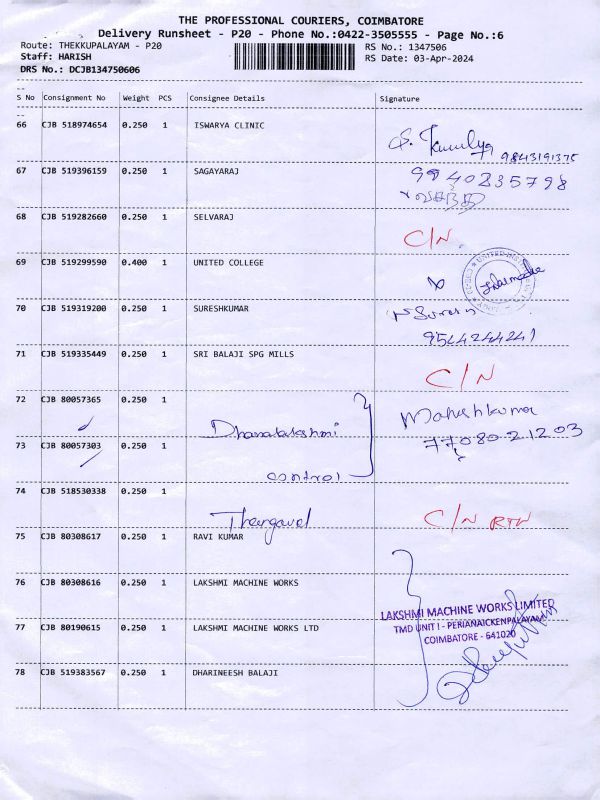 THE PROFESSIONAL COURIERS, COIMBATORE
Delivery Runsheet - P20 - Phone No.:0422-3505555 - Page No.:6
Route: THEKKUPALAYAM - P20 RS No.: 1347506
Staff: HARISH RS Date: 03-Apr-2024
DRS No.: DCJB134750606
S No Consignment No Weight PCS Consignee Details Signature
66 CJB 518974654 0.250 1 ISWARYA CLINIC
9843191375
67 CJB 519396159 0.250 1 SAGAYARAJ
9940235798
68 CJB 519282660 0.250 1 SELVARAJ
C/N.
69 CJB 519299590 0.400 1 UNITED COLLEGE
70 CJB 519319200 0.250 1 SURESHKUMAR
Suresh
71 CJB 519335449 0.250 1 SRI BALAJI SPG MILLS
C/N
72 CJB 80057365 0.250 1
Dhanalakshmi Maheshkumar
73 CJB 80057303 0.250 1 77080-21203
control
74 CJB 518530338 0.250 1
Thangavel C/N RTN
75 CJB 80308617 0.250 1 RAVI KUMAR
76 CJB 80308616 0.250 1 LAKSHMI MACHINE WORKS
LAKSHMI MACHINE WORKS LIMITED
77 CJB 80190615 0.250 1 LAKSHMI MACHINE WORKS LTD TMD UNIT I - PERIANAICKENPALAYAM
COIMBATORE - 641020
78 CJB 519383567 0.250 1 DHARINEESH BALAJI